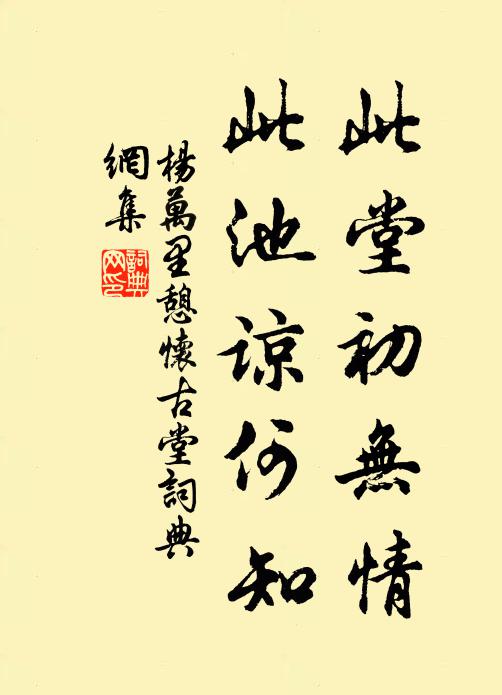 此堂初無情
此池谅何知
楊萬里憩懷古堂詞典
網集
詞典
网印